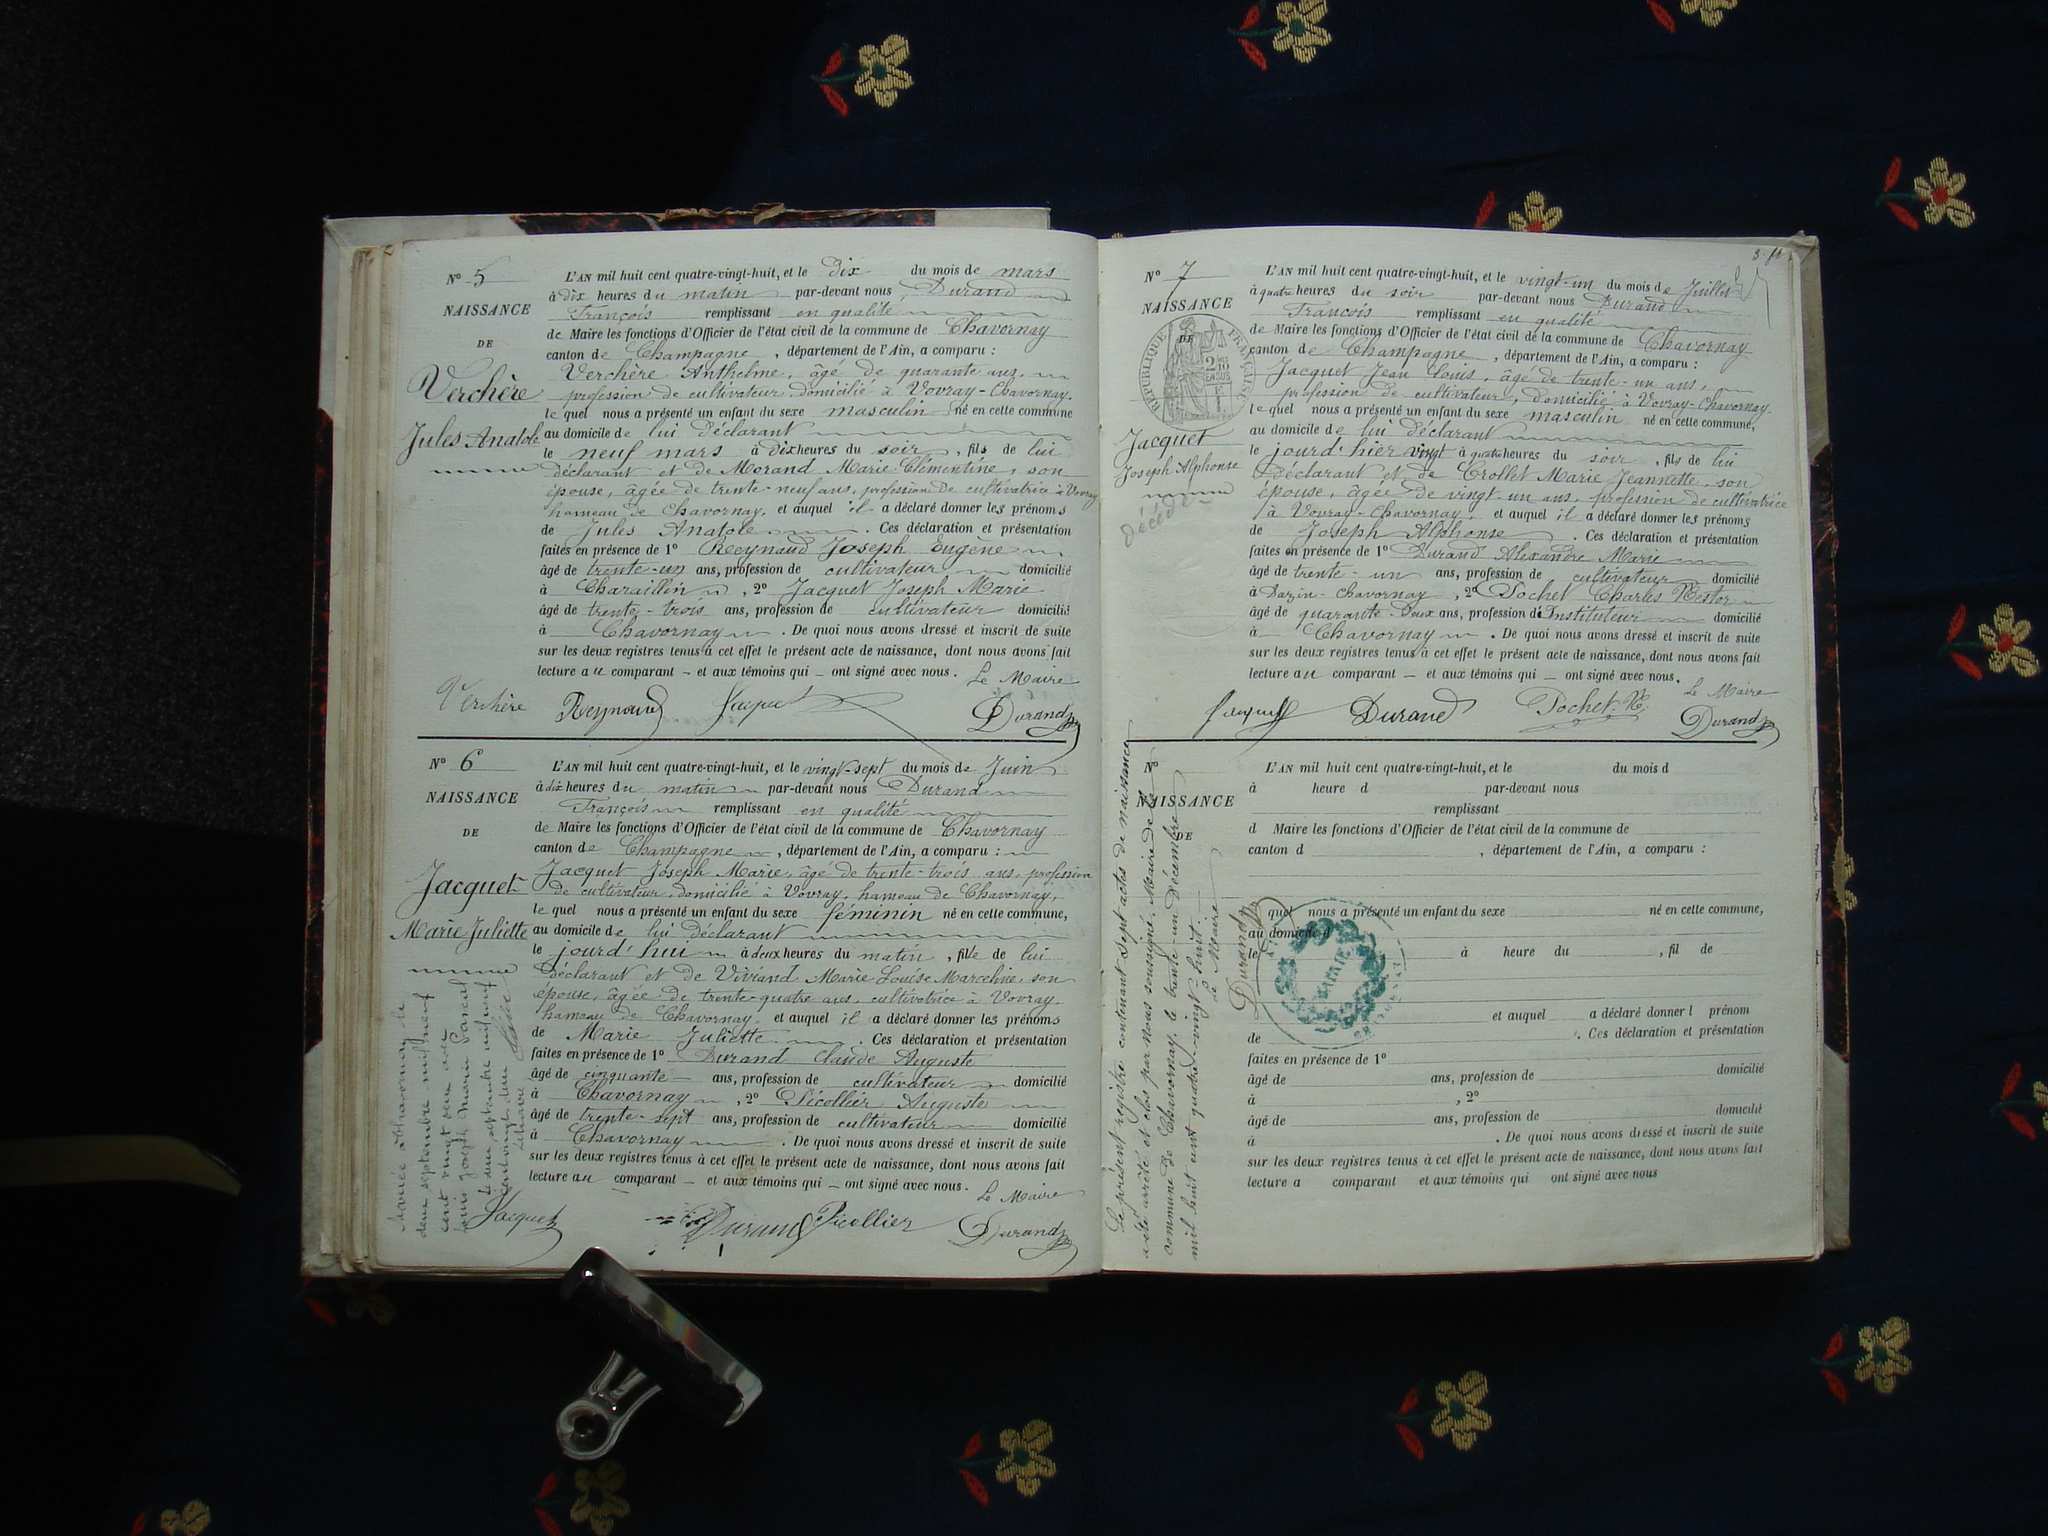 N° 5
NAISSANCE
DE
Verchère
Jules Anatole
L'AN mil huit cent quatre-vingt-huit, et le dix du mois de mars
à dix heures du matin par-devant nous Durand
François remplissant en qualité
de Maire les fonctions d'Officier de l'état civil de la commune de Chavornay
canton de Champagne, département de l'Ain, a comparu :
Verchère Anthelme, âgé de quarante ans,
profession de cultivateur domicilié à Vovray-Chavornay.
le quel nous a présenté un enfant du sexe masculin né en cette commune
au domicile de lui déclarant
le neuf mars à dix heures du soir, fils de lui
déclarant et de Morand Marie Clémentine, son
épouse, âgée de trente-neuf ans, profession de cultivatrice à Vovray
hameau de Chavornay, et auquel il a déclaré donner les prénoms
de Jules Anatole. Ces déclaration et présentation
faites en présence de 1° Reynaud Joseph Eugène
âgé de trente-un ans, profession de cultivateur domicilié
à Charaillin, 2° Jacquet Joseph Marie
âgé de trente-trois ans, profession de cultivateur domicilié
à Chavornay. De quoi nous avons dressé et inscrit de suite
sur les deux registres tenus à cet effet le présent acte de naissance, dont nous avons fait
lecture au comparant – et aux témoins qui – ont signé avec nous. Le Maire
Verchère Reynaud Jacquet Durand
N° 6
NAISSANCE
DE
Jacquet
Marie Juliette
L'AN mil huit cent quatre-vingt-huit, et le vingt-sept du mois de Juin
à dix heures du matin par-devant nous Durand
François remplissant en qualité
de Maire les fonctions d'Officier de l'état civil de la commune de Chavornay
canton de Champagne, département de l'Ain, a comparu :
Jacquet Joseph Marie, âgé de trente-trois ans, profession
de cultivateur, domicilié à Vovray, hameau de Chavornay,
le quel nous a présenté un enfant du sexe féminin né en cette commune,
au domicile de lui déclarant
le jourd'hui à deux heures du matin, fille de lui
déclarant et de Viviand Marie Louise Marceline, son
épouse, âgée de trente-quatre ans, cultivatrice à Vovray
hameau de Chavornay, et auquel il a déclaré donner les prénoms
de Marie Juliette. Ces déclaration et présentation
faites en présence de 1° Durand Claude Auguste
âgé de cinquante – ans, profession de cultivateur domicilié
à Chavornay, 2° Picollier Auguste
âgé de trente-sept ans, profession de cultivateur domicilié
à Chavornay. De quoi nous avons dressé et inscrit de suite
sur les deux registres tenus à cet effet le présent acte de naissance, dont nous avons fait
lecture au comparant – et aux témoins qui – ont signé avec nous. Le Maire
Jacquet Durand Picollier Durand
Mariée à Chavornay le
deux septembre mil neuf
cent vingt
Joseph Marie Pascal
septembre mil neuf
N° 7
NAISSANCE
DE
RÉPUBLIQUE FRANÇAISE
Jacquet
Joseph Alphonse
décédé
L'AN mil huit cent quatre-vingt-huit, et le vingt-un du mois de Juillet
à quatre heures du soir par-devant nous Durand
François remplissant en qualité
de Maire les fonctions d'Officier de l'état civil de la commune de Chavornay
canton de Champagne, département de l'Ain, a comparu :
Jacquet Jean Louis, âgé de trente-un ans,
profession de cultivateur, domicilié à Vovray-Chavornay.
le quel nous a présenté un enfant du sexe masculin né en cette commune,
au domicile de lui déclarant
le jourd'hier vingt à quatre heures du soir, fils de lui
déclarant et de Crollet Marie Jeannette, son
épouse, âgée de vingt-un ans, profession de cultivatrice
à Vovray-Chavornay, et auquel il a déclaré donner les prénoms
de Joseph Alphonse. Ces déclaration et présentation
faites en présence de 1° Durand Alexandre Marie
âgé de trente-un ans, profession de cultivateur domicilié
à Dazin-Chavornay, 2° Pochet Charles Nestor
âgé de quarante-deux ans, profession d'Instituteur domicilié
à Chavornay. De quoi nous avons dressé et inscrit de suite
sur les deux registres tenus à cet effet le présent acte de naissance, dont nous avons fait
lecture au comparant – et aux témoins qui – ont signé avec nous. Le Maire
Jacquet Durand Pochet. N. Durand
N°
NAISSANCE
DE
L'AN mil huit cent quatre-vingt-huit, et le du mois d
à heure d par-devant nous
remplissant
d Maire les fonctions d'Officier de l'état civil de la commune de
canton d , département de l'Ain, a comparu :
quel nous a présenté un enfant du sexe né en cette commune,
au domicile d
le à heure du , fil de
et auquel a déclaré donner l prénom
de . Ces déclaration et présentation
faites en présence de 1°
âgé de ans, profession de domicilié
à , 2°
âgé de ans, profession de domicilié
à . De quoi nous avons dressé et inscrit de suite
sur les deux registres tenus à cet effet le présent acte de naissance, dont nous avons fait
lecture a comparant et aux témoins qui ont signé avec nous
Le présent registre contenant sept actes de naissance
a été arrêté et clos par nous soussigné, Maire de la
commune de Chavornay, le trente-un Décembre
mil huit cent quatre-vingt-huit.
Le Maire
Durand
MAIRIE